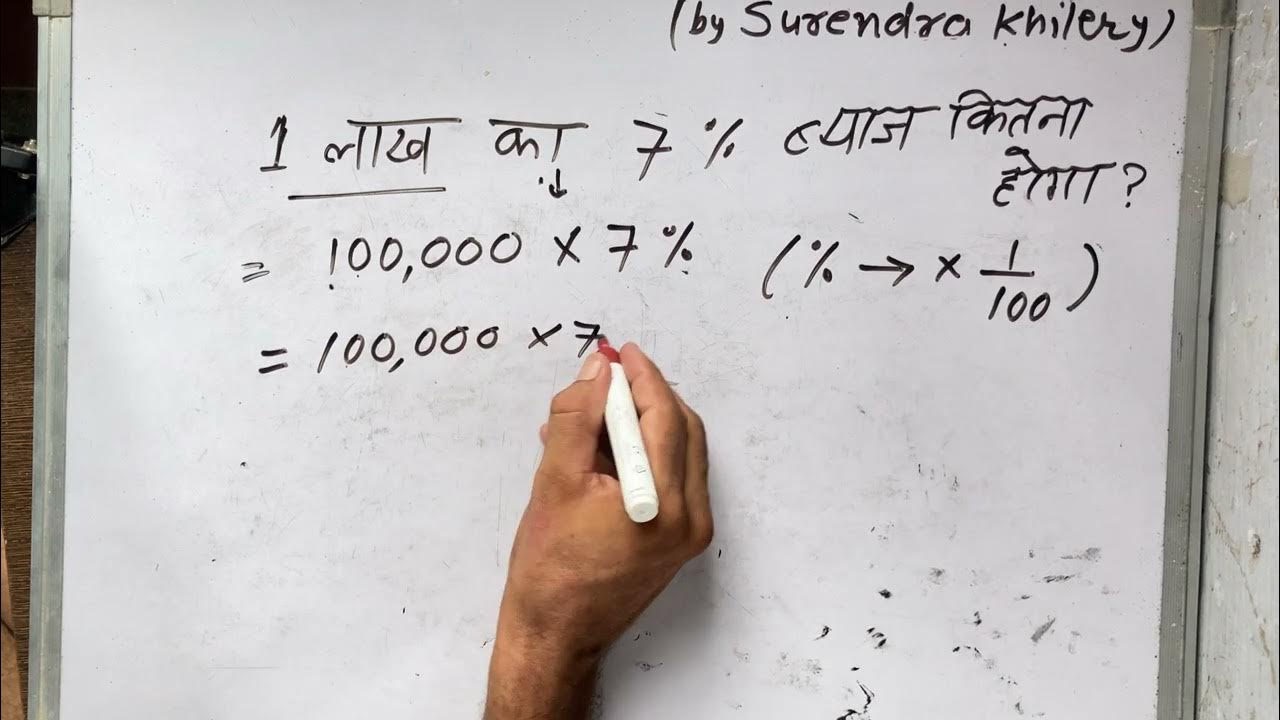 (by Surendra Khilery)
1 लाख का 7 % ब्याज कितना
होगा ?
= 100,000 × 7 % ( % → × 1/100 )
= 100,000 × 7